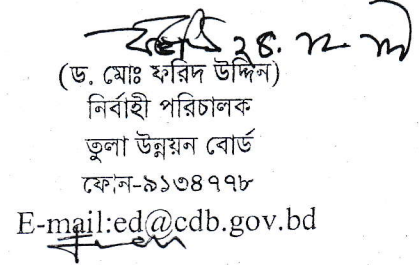 (ড. মোঃ ফরিদ উদ্দিন)
নির্বাহী পরিচালক
তুলা উন্নয়ন বোর্ড
ফোন-৯১৩৪৭৭৮
E-mail:ed@cdb.gov.bd